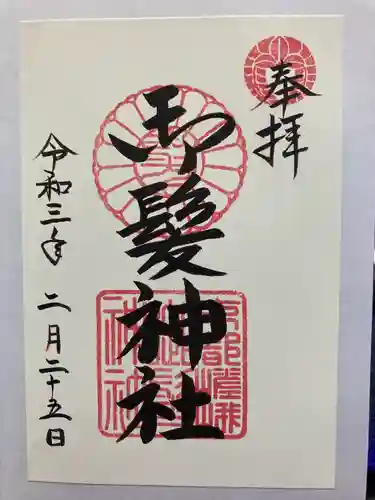 奉拝
御髪神社
令和三年 二月二十五日